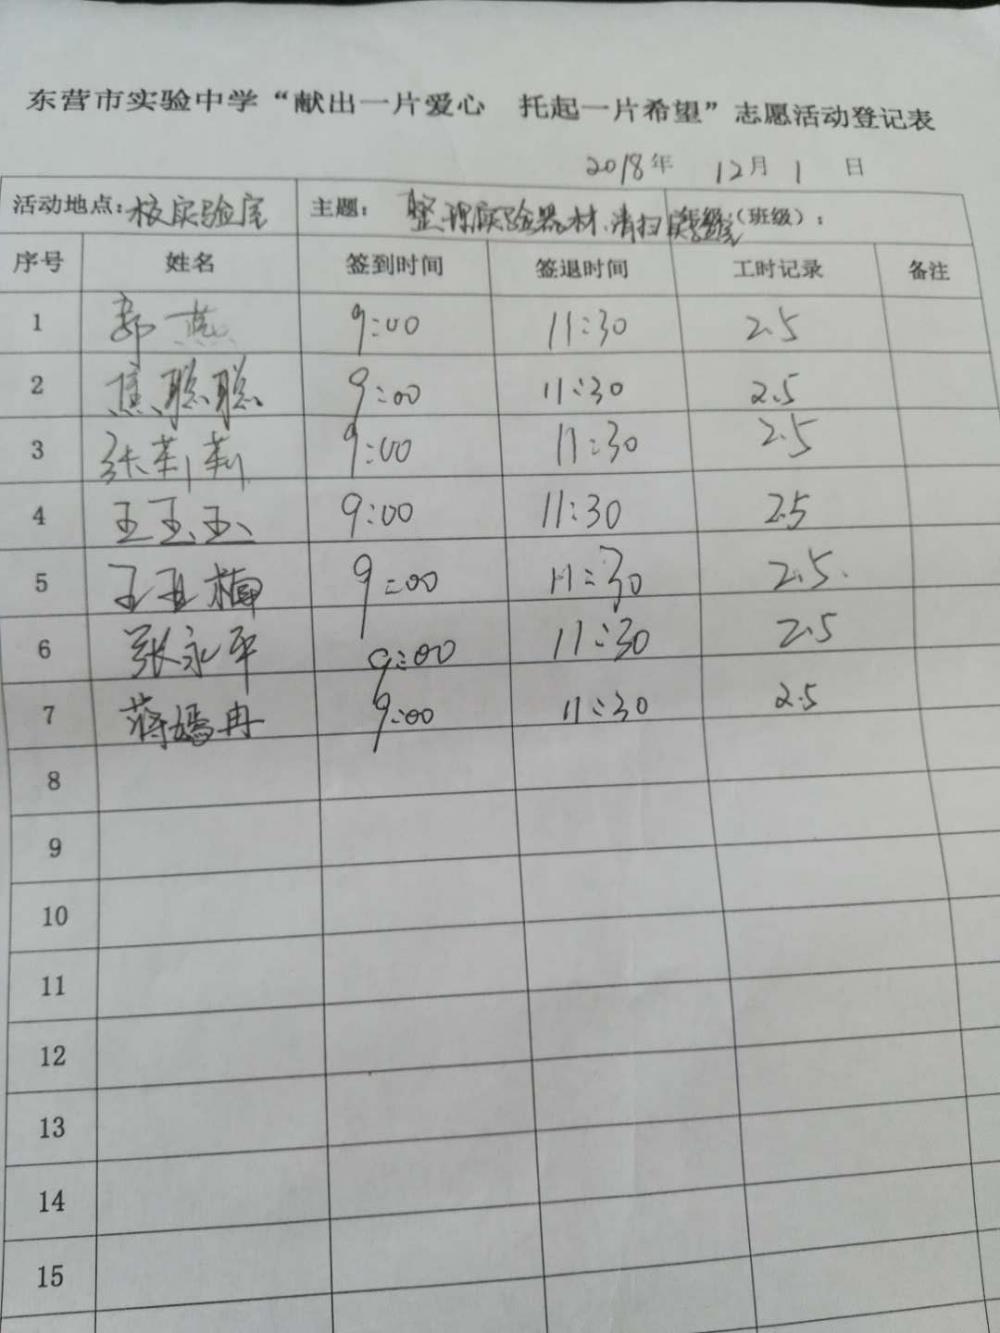 东营市实验中学“献出一片爱心 托起一片希望”志愿活动登记表
2018年 12月 1 日
活动地点:校实验室 主题: 整理实验器材、清扫实验室 (班级):
序号 姓名 签到时间 签退时间 工时记录 备注
1 郭燕 9:00 11:30 2.5
2 焦聪聪 9:00 11:30 2.5
3 张莉莉 9:00 11:30 2.5
4 王玉玉 9:00 11:30 2.5
5 王亚楠 9:00 11:30 2.5.
6 张永平 9:00 11:30 2.5
7 蒋嫣冉 9:00 11:30 2.5
8
9
10
11
12
13
14
15